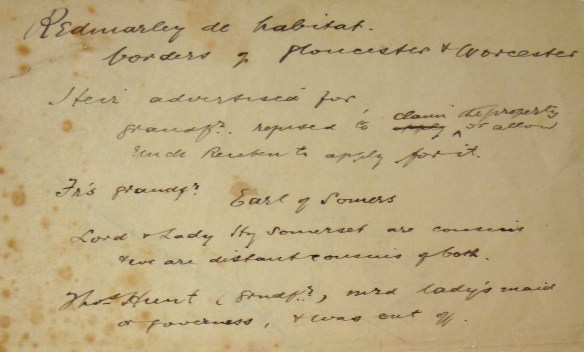 Redmarley de habitat.
borders of Gloucester & Worcester
Heir advertised for
grandfr. refused to apply claim the property or allow
Uncle Reuben to apply for it.
Fr's grandfr. Earl of Somers
Lord & Lady Hy Somerset are cousins
& we are distant cousins of both.
Thos. Hunt (grandfr.), mrd lady's maid
or governess, & was cut off.